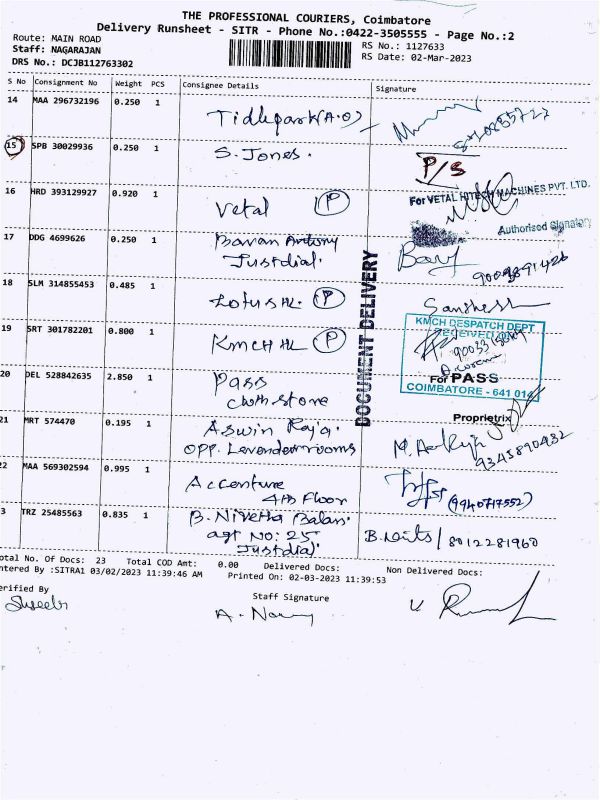 THE PROFESSIONAL COURIERS, Coimbatore
Delivery Runsheet - SITR - Phone No.:0422-3505555 - Page No.:2
Route: MAIN ROAD
Staff: NAGARAJAN
DRS No.: DCJB112763302
RS No.: 1127633
RS Date: 02-Mar-2023
S No Consignment No Weight PCS Consignee Details Signature
14 MAA 296732196 0.250 1 Tidlepark(A.O)
15 SPB 30029936 0.250 1 S. Jones. P/S
16 HRD 393129927 0.920 1 Vetal P
For VETAL HITECH MACHINES PVT. LTD.
Authorised Signatory
17 DDG 4699626 0.250 1 Bavan Antony
Justdial.
18 SLM 314855453 0.485 1 Lotus HL. P
19 SRT 301782201 0.800 1 KMCH HL P
KMCH DESPATCH DEPT
RECEIVED
COIMBATORE - 641 014
DOCUMENT DELIVERY
20 DEL 528842635 2.850 1 Pass
cloth store
For PASS
Proprietrix
21 MRT 574470 0.195 1 Aswin Raja.
opp. Lavender rooms
9345890932
22 MAA 569302594 0.995 1 Accenture
4th Floor
(9940717552)
3 TRZ 25485563 0.835 1 B. Nivetha Balan.
agt No: 25
Justdial.
8012281960
otal No. Of Docs: 23 Total COD Amt: 0.00 Delivered Docs: Non Delivered Docs:
ntered By :SITRA1 03/02/2023 11:39:46 AM Printed On: 02-03-2023 11:39:53
erified By
Staff Signature